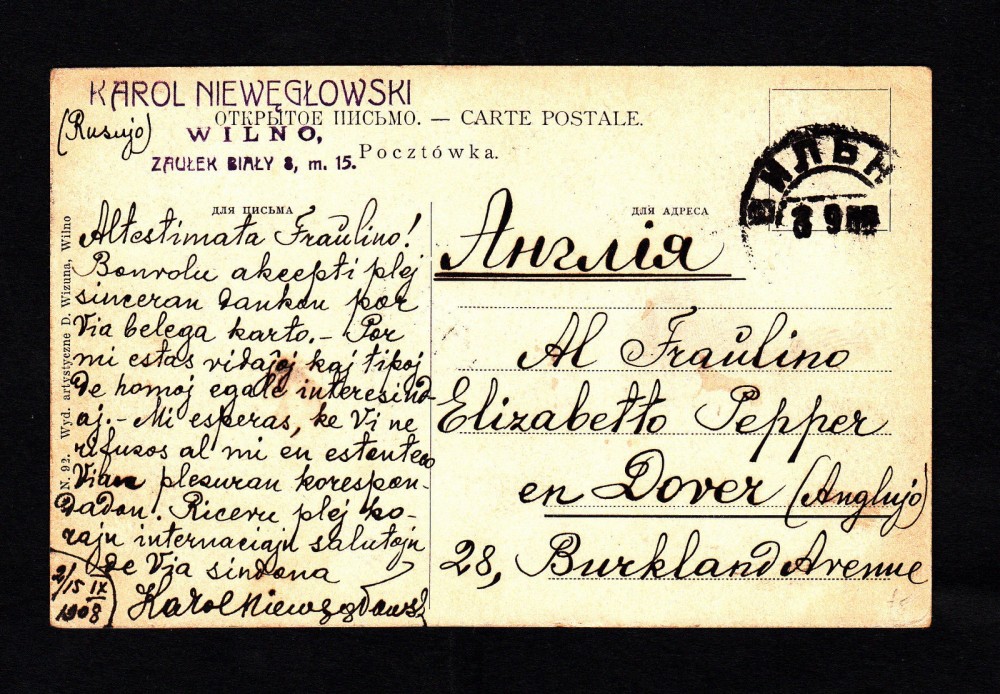 KAROL NIEWĘGŁOWSKI
ОТКРЫТОЕ ПИСЬМО. — CARTE POSTALE.
(Rusujo)
WILNO,
ZAUŁEK BIAŁY 8, m. 15.
Pocztówka.
ВИЛЬН
8 9 08
ДЛЯ ПИСЬМА
ДЛЯ АДРЕСА
N. 92. Wyd. artystyczne D. Wizuna, Wilno
Altestimata Fraŭlino!
Bonvolu akcepti plej
sinceran dankon por
Via belega karto.- Por
mi estas vidaĵoj kaj tipoj
de homoj egale interesind-
aj.- Mi esperas, ke Vi ne
rifuzos al mi en estonteco
Vian plezuran korespon-
dadon. Ricevu plej ko-
rajn internaciajn salutojn
de Via sindona
Karol Niewęgłowski
2/15 IX
1908
Англія
Al Fraŭlino
Elizabetto Pepper
en Dover (Anglujo)
28, Burkland Avenue